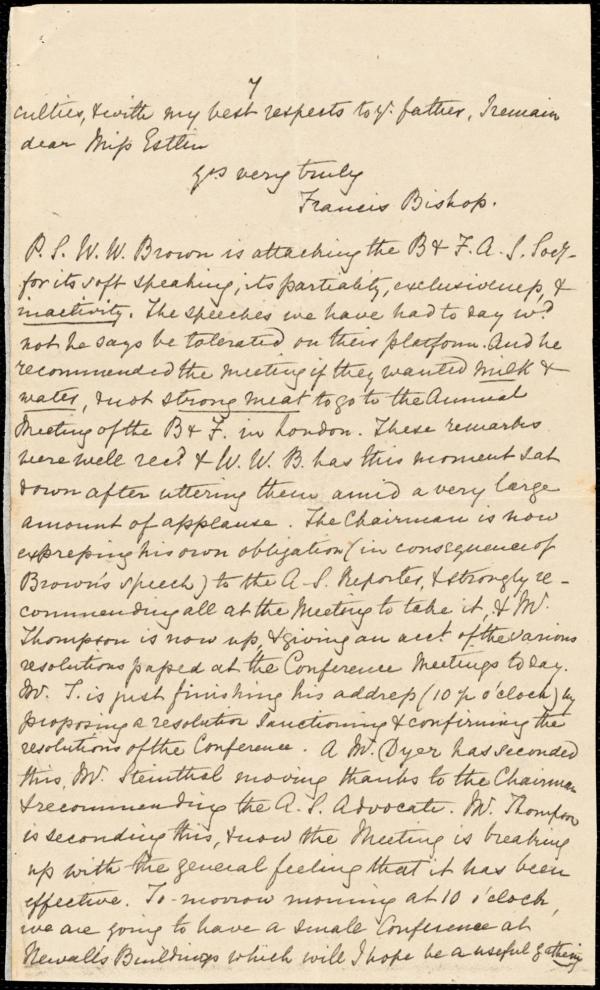 7
culties, & with my best respects to yr. father, I remain
dear Miss Estlin
yrs very truly
Francis Bishop.
P.S. W. W. Brown is attacking the B & F. A. S. Socy.
for its soft speaking, its partiality, exclusiveness, &
inactivity. The speeches we have had to day wd.
not he says be tolerated on their platform. And he
recommended the meeting if they wanted milk &
water, & not strong meat to go to the Annual
Meeting of the B & F. in London. These remarks
were well recd. & W. W. B. has this moment sat
down after uttering them amid a very large
amount of applause. The Chairman is now
expressing his own obligation (in consequence of
Brown's speech) to the A-S. Reporter, & strongly re-
commending all at the Meeting to take it, & Mr.
Thompson is now up, & giving an acct. of the various
resolutions passed at the Conference Meetings to day.
Mr. T. is just finishing his address (10 p o'clock) by
proposing a resolution sanctioning & confirming the
resolutions of the Conference. A Mr. Dyer has seconded
this, Mr. Steinthal moving thanks to the Chairman
& recommending the A. S. Advocate. Mr. Thompson
is seconding this, & now the Meeting is breaking
up with the general feeling that it has been
effective. To-morrow morning at 10 o'clock,
we are going to have a small Conference at
Newall's Buildings which will I hope be a useful gathering